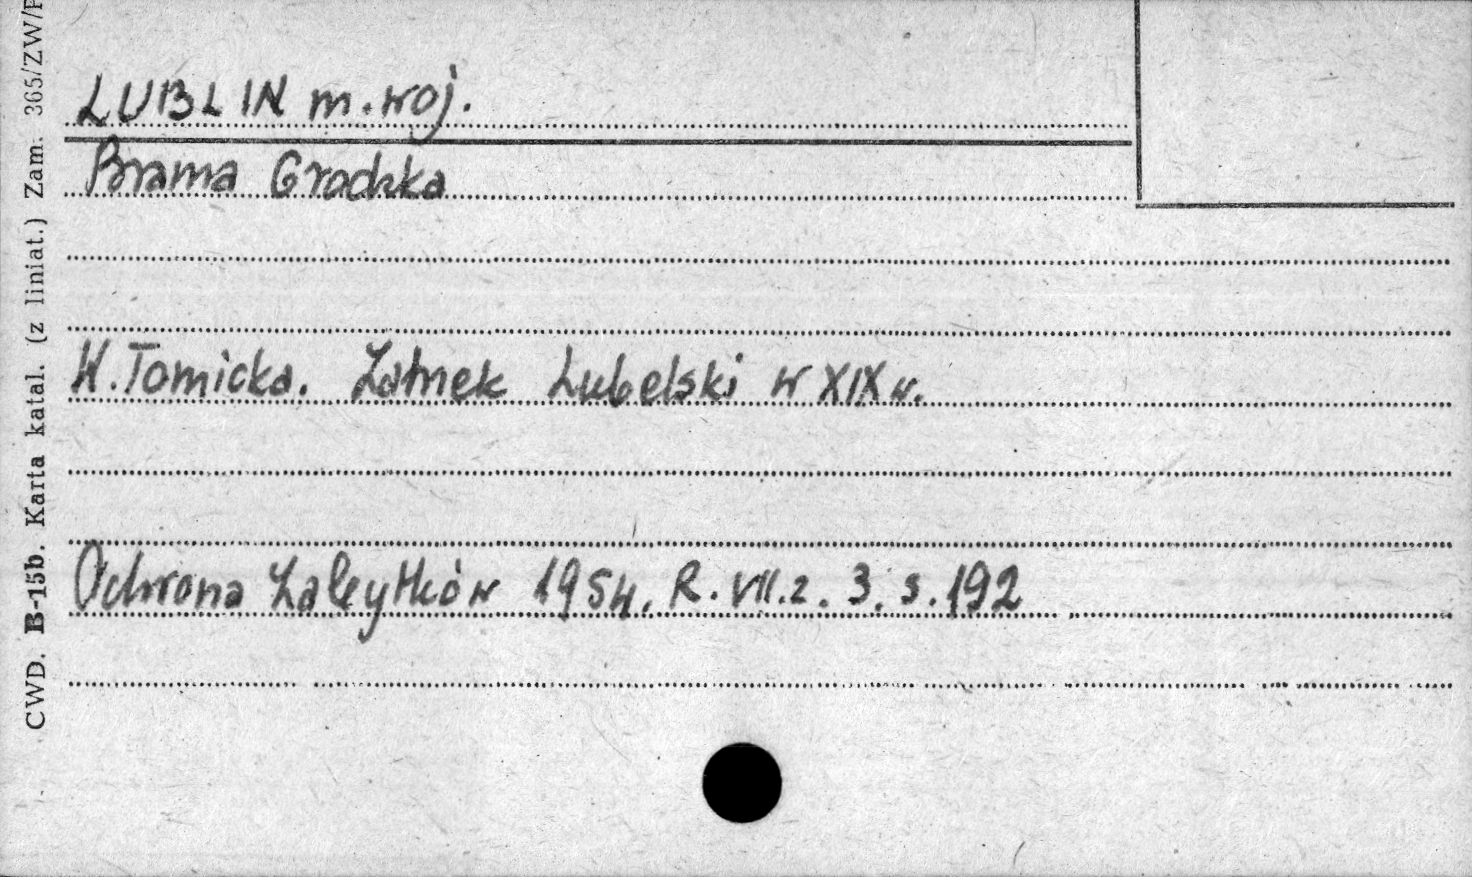 LUBLIN m. woj.
Brama Grodzka
W. Tomicka. Zamek Lubelski w XIX w.
Ochrona Zabytków 1954. R. VII. z. 3. s. 192
CWD. B-15b. Karta katal. (z liniat.) Zam. 365/ZW/